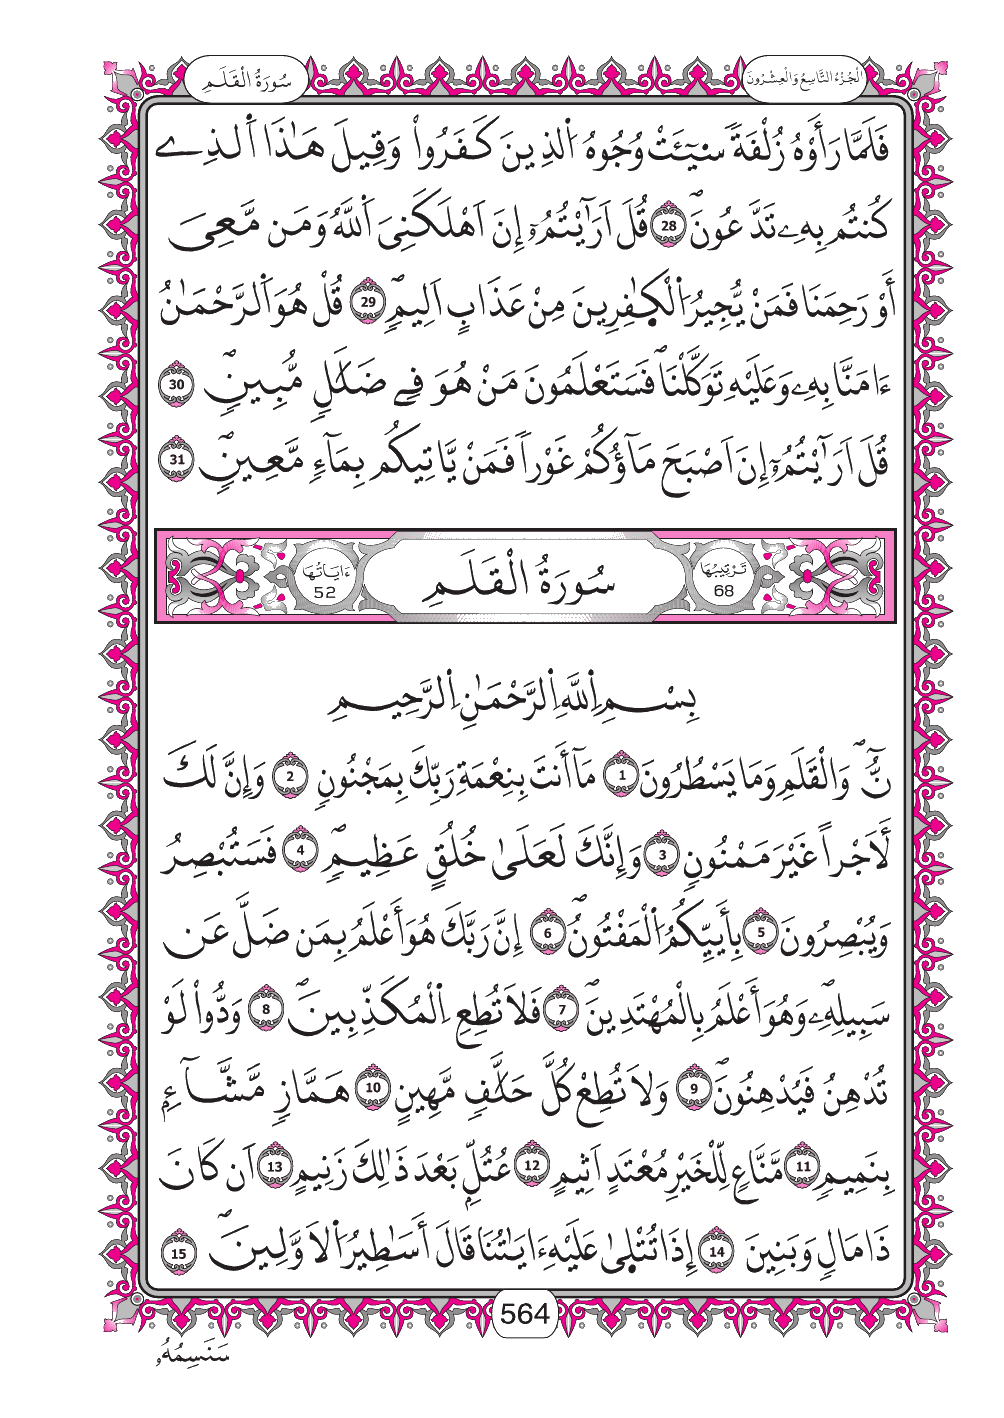 سُورَةُ الْقَلَمِ
الْجُزْءُ التَّاسِعُ وَالْعِشْرُونَ
فَلَمَّا رَأَوْهُ زُلْفَةً سِيٓـَٔتْ وُجُوهُ اُ۬لذِينَ كَفَرُواْ وَقِيلَ هَٰذَا اَ۬لذِے
كُنتُم بِهِۦ تَدَّعُونَۖ 28 قُلَ اَرَٰٓيْتُمُۥٓ إِنَ اَهْلَكَنِيَ اَ۬للَّهُ وَمَن مَّعِيَ
أَوْ رَحِمَنَا فَمَنْ يُّجِيرُ اُ۬لْكٰ۪فِرِينَ مِنْ عَذَابٍ اَلِيمٖۖ 29 قُلْ هُوَ اَ۬لرَّحْمَٰنُ
ءَامَنَّا بِهِۦ وَعَلَيْهِ تَوَكَّلْنَاۖ فَسَتَعْلَمُونَ مَنْ هُوَ فِے ضَلَٰلٖ مُّبِينٖۖ 30
قُلَ اَرَٰٓيْتُمُۥٓ إِنَ اَصْبَحَ مَآؤُكُمْ غَوْراٗ فَمَنْ يَّاتِيكُم بِمَآءٖ مَّعِينٖۖ 31
تَرْتِيبُهَا 68
سُورَةُ الْقَلَمِ
ءَايَاتُهَا 52
بِسْمِ اِ۬للَّهِ اِ۬لرَّحْمَٰنِ اِ۬لرَّحِيمِ
نَّۖ وَالْقَلَمِ وَمَا يَسْطُرُونَ 1 مَآ أَنتَ بِنِعْمَةِ رَبِّكَ بِمَجْنُونٖ 2 وَإِنَّ لَكَ
لَأَجْراً غَيْرَ مَمْنُونٖ 3 وَإِنَّكَ لَعَلَىٰ خُلُقٍ عَظِيمٖۖ 4 فَسَتُبْصِرُ
وَيُبْصِرُونَ 5 بِأَييِّكُمُ اُ۬لْمَفْتُونُۖ 6 إِنَّ رَبَّكَ هُوَ أَعْلَمُ بِمَن ضَلَّ عَن
سَبِيلِهِۦۖ وَهُوَ أَعْلَمُ بِالْمُهْتَدِينَۖ 7 فَلَا تُطِعِ اِ۬لْمُكَذِّبِينَۖ 8 وَدُّواْ لَوْ
تُدْهِنُ فَيُدْهِنُونَۖ 9 وَلَا تُطِعْ كُلَّ حَلَّافٖ مَّهِينٍ 10 هَمَّازٖ مَّشَّآءِۢ
بِنَمِيمٖ 11 مَّنَّاعٖ لِّلْخَيْرِ مُعْتَدٍ اَثِيمٍ 12 عُتُلِّۢ بَعْدَ ذَٰلِكَ زَنِيمٍ 13 اَن كَانَ
ذَا مَالٖ وَبَنِينَ 14 إِذَا تُتْل۪يٰ عَلَيْهِ ءَايَٰتُنَا قَالَ أَسَٰطِيرُ اُ۬لَاوَّلِينَۖ 15
564
سَنَسِمُهُۥ